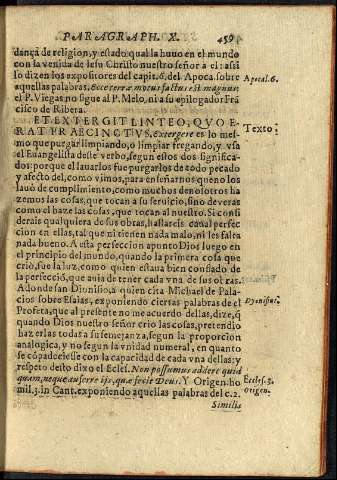 PARAGRAPH. X. 459
dança de religion, y estado qual la huuo en el mundo
con la venida de Iesu Christo nuestro señor a el: assi
lo dizen los expositores del capit. 6. del Apoca. sobre
aquellas palabras, Ecce terræ motus factus est magnus:
el P. Viegas no sigue al P. Melo, ni a su epilogador Frã
cisco de Ribera.
Apocal. 6.
ET EXTERGIT LINTEO, QVO E-
RAT PRÆCINCTVS, extergere es lo mes-
mo que purgar limpiando, o limpiar fregando, y vsa
el Euangelista deste verbo, segun estos dos significa-
dos: porque el lauarlos fue purgarlos de todo pecado
y afecto del, como vimos, para enseñarnos que no los
lauò de cumplimiento, como muchos de nosotros ha
zemos las cosas, que tocan a su seruicio, sino deveras
como el haze las cosas, que tocan al nuestro. Si consi
derais qualquiera de sus obras, hallareis en ella perfec
cion en ellas, tal que ni tienen nada malo, ni les falta
nada bueno. A esta perfeccion apunto Dios luego en
el principio del mundo, quando la primera cosa que
crio, fue la luz, como quien estaua bien confiado de
la perfecciõ, que auia de tener cada vna de sus obras.
Adonde san Dionisio, a quien cita Michael de Pala-
cios sobre Esaias, exponiendo ciertas palabras de el
Profeta, que al presente no me acuerdo dellas, dize, q̃
quando Dios nuestro señor crio las cosas, pretendio
hazerlas todas a su semejança, segun la proporcion
analogica, y no segun la vnidad numeral, en quanto
se cõpadeciesse con la capacidad de cada vna dellas: y
respeto desto dixo el Ecles. Non possumus addere quid
quam, neque auferre ijs, quæ fecit Deus. Y Origen. ho
mil. 3. in Cant. exponiendo aquellas palabras del c. 2.
Texto:
Dyonisius.
Eccles. 3.
Origen.
Similis